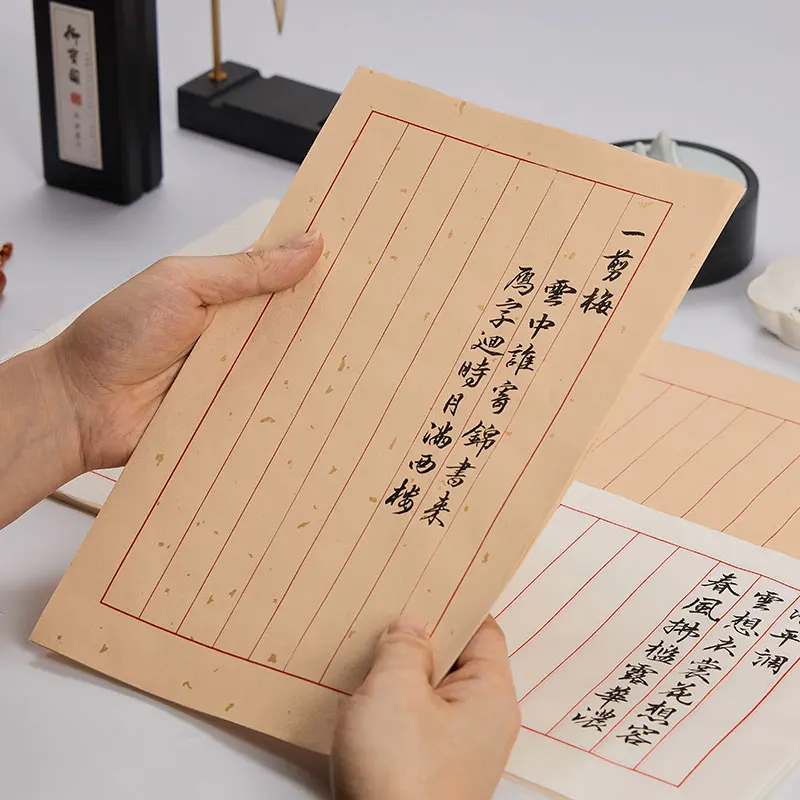 一剪梅
雲中誰寄錦書来
雁字迴時月滿西樓
平調
雲想衣裳花想容
春風拂檻露華濃